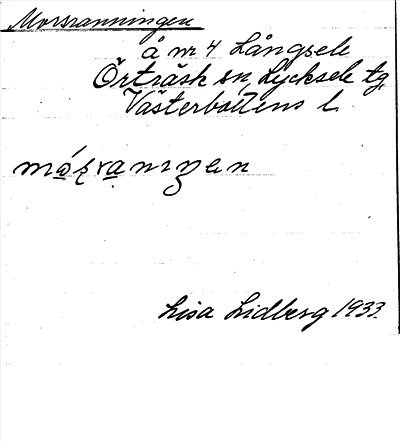 Morsranningen
å nr 4 Långsele
Örträsk sn, Lycksele tg,
Västerbottens l.
Lisa Lidberg 1933.